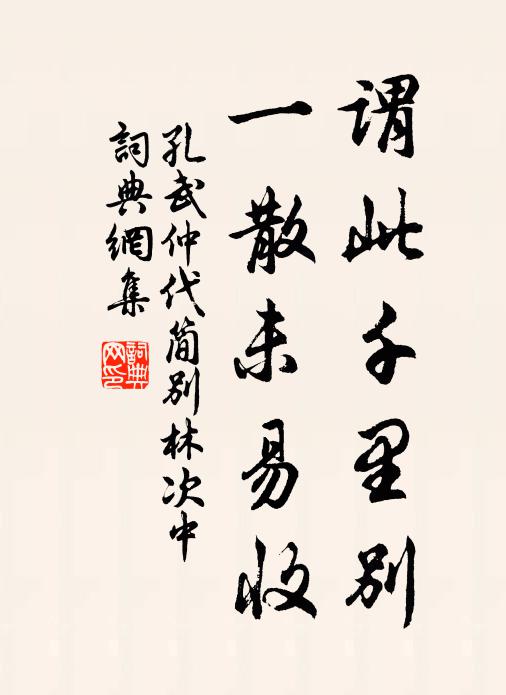 謂此千里别
一散未易收
孔武仲代简别林次中
詞典網集
詞典
网印